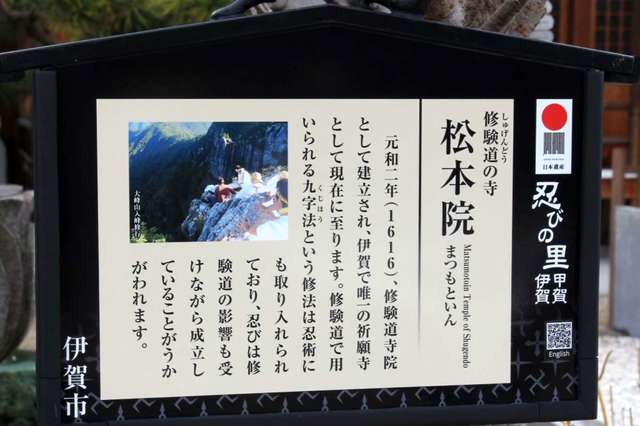 日本遺産
忍びの里
伊賀
甲賀
English
修験道の寺
しゅげんどう
松本院
まつもといん
Matsumotoin Temple of Shugendo
元和二年（1616）、修験道寺院
として建立され、伊賀で唯一の祈願寺
として現在に至ります。修験道で用
いられる九字法という修法は忍術に
くじほう
も取り入れられ
ており、忍びは修
験道の影響も受
けながら成立し
ていることがうか
がわれます。
大峰山入峰修行
伊賀市